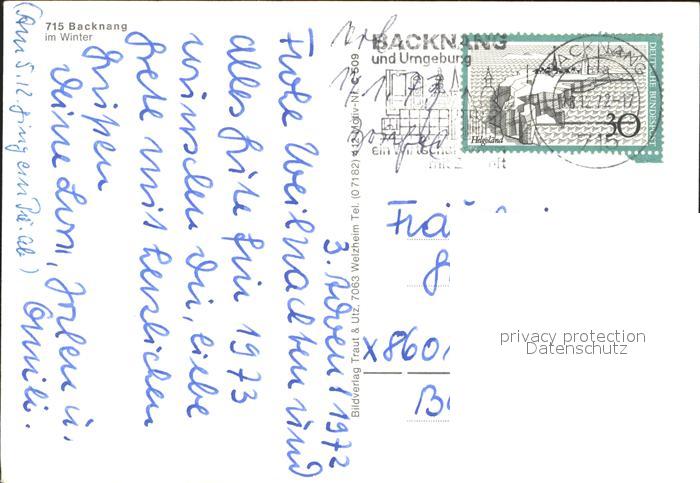 715 Backnang
im Winter
3. Advent 1972
Frohe Weihnachten und
alles Gute für 1973
wünschen Dir, liebe
Grete mit herzlichen
Grüßen
Deine
Emili.
(Am 5.12. ging ein Pä. ab)
Bildverlag Traut & Utz, 7063 Welzheim Tel. (07182) 412 Motiv-Nr. S 509
BACKNANG
und Umgebung
BACKNANG
715
DEUTSCHE BUNDESPOST
30
Helgoland
Frä
X8601
privacy protection
Datenschutz